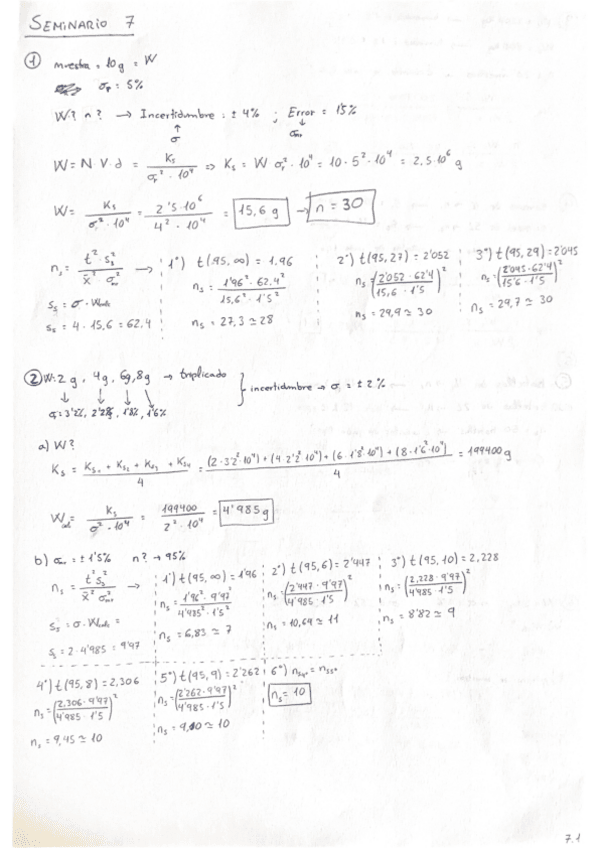 SEMINARIO 7
① muestra = 10g = W
σr = 5%
W? n? → Incertidumbre = ± 4% ; Error = 15%
↑ ↓
σ σm
W = N V·d = Ks / σr²·10⁴ ⇒ Ks = W σr²·10⁴ = 10·5²·10⁴ = 2,5·10⁶ g
W = Ks / σr²·10⁴ = 2'5·10⁶ / 4²·10⁴ = 15,6 g → n = 30
ns = t²·ss² / x̄²·σm² → 1º) t(95, ∞) = 1.96
ns = 1'96²·62,4² / 15,6²·1'5²
ns = 27,3 ≃ 28
ss = σ·Wcalc
ss = 4·15,6 = 62,4
2º) t(95, 27) = 2'052
ns = (2'052·62'4 / 15,6·1'5)²
ns = 29,9 ≃ 30
3º) t(95, 29) = 2'045
ns = (2'045·62'4 / 15'6·1'5)²
ns = 29,7 ≃ 30
② W: 2g, 4g, 6g, 8g → triplicado } incertidumbre → σ = ± 2%
↓ ↓ ↓ ↓
σ = 3'2%, 2'2%, 1'8%, 1'6%
a) W?
Ks = Ks1 + Ks2 + Ks3 + Ks4 / 4 = (2·3'2²·10⁴) + (4·2'2²·10⁴) + (6·1'8²·10⁴) + (8·1'6²·10⁴) / 4 = 199400 g
Wcalc = Ks / σ²·10⁴ = 199400 / 2²·10⁴ = 4'985g
b) σm = ± 1'5% n? → 95%
ns = t²ss² / x̄² σm² →
ss = σ·Wcalc =
ss = 2·4'985 = 9'97
1º) t(95, ∞) = 1'96
ns = 1'96²·9'97² / 4'985²·1'5²
ns = 6,83 ≃ 7
2º) t(95, 6) = 2'447
ns = (2'447·9'97 / 4'985·1'5)²
ns = 10,64 ≃ 11
3º) t(95, 10) = 2,228
ns = (2,228·9'97 / 4'985·1'5)²
ns = 8'82 ≃ 9
4º) t(95, 8) = 2,306
ns = (2,306·9'97 / 4'985·1'5)²
ns = 9,45 ≃ 10
5º) t(95, 9) = 2'262
ns = (2'262·9'97 / 4'985·1'5)²
ns = 9,10 ≃ 10
6º) ns4º = ns5º
ns = 10
7.1